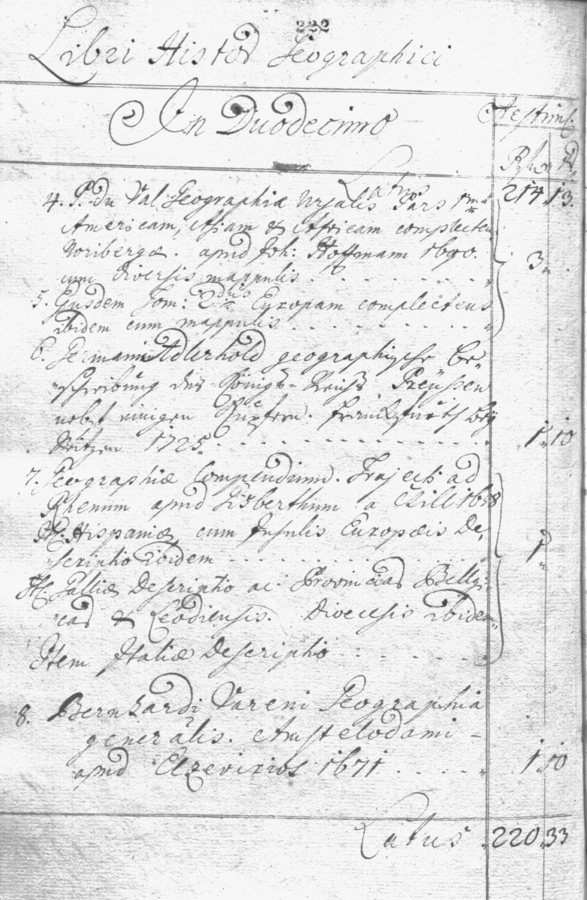 222
Libri Histor Geographici
In Duodecimo
Aestim:
Rh
Latus 214 13.
4. P. du Val Geographiæ Vrsalis Pars
Americam, Asiam & Africam complectens
Noribergæ. apud Joh: Hoffmann 1690. 3
cum diversis mappulis
5. Ejusdem Tom: 2dus Europam complectens
ibidem cum mappulis
6. Germani Adlerhold geographische Be-
schreibung des Königreichs Preüssen
nebst einigen Kupfern. Franckfurth bey
1725. 1 10
7. Geographiæ Compendium. Trajecti ad
Rhenum apud Gisbertum a Zill 1658
It: Hispaniæ cum Insulis Europæis De-
scriptio ibidem 1
It: Galliæ Descriptio ac Provincias Belgi-
cas & Leodiensis. Diocesis ibidem
Item Italiæ Descriptio
8. Bernhardi Vareni Geographia
generalis. Amstelodami -
apud Elzevirios 1671. 1 10
Latus 220 33